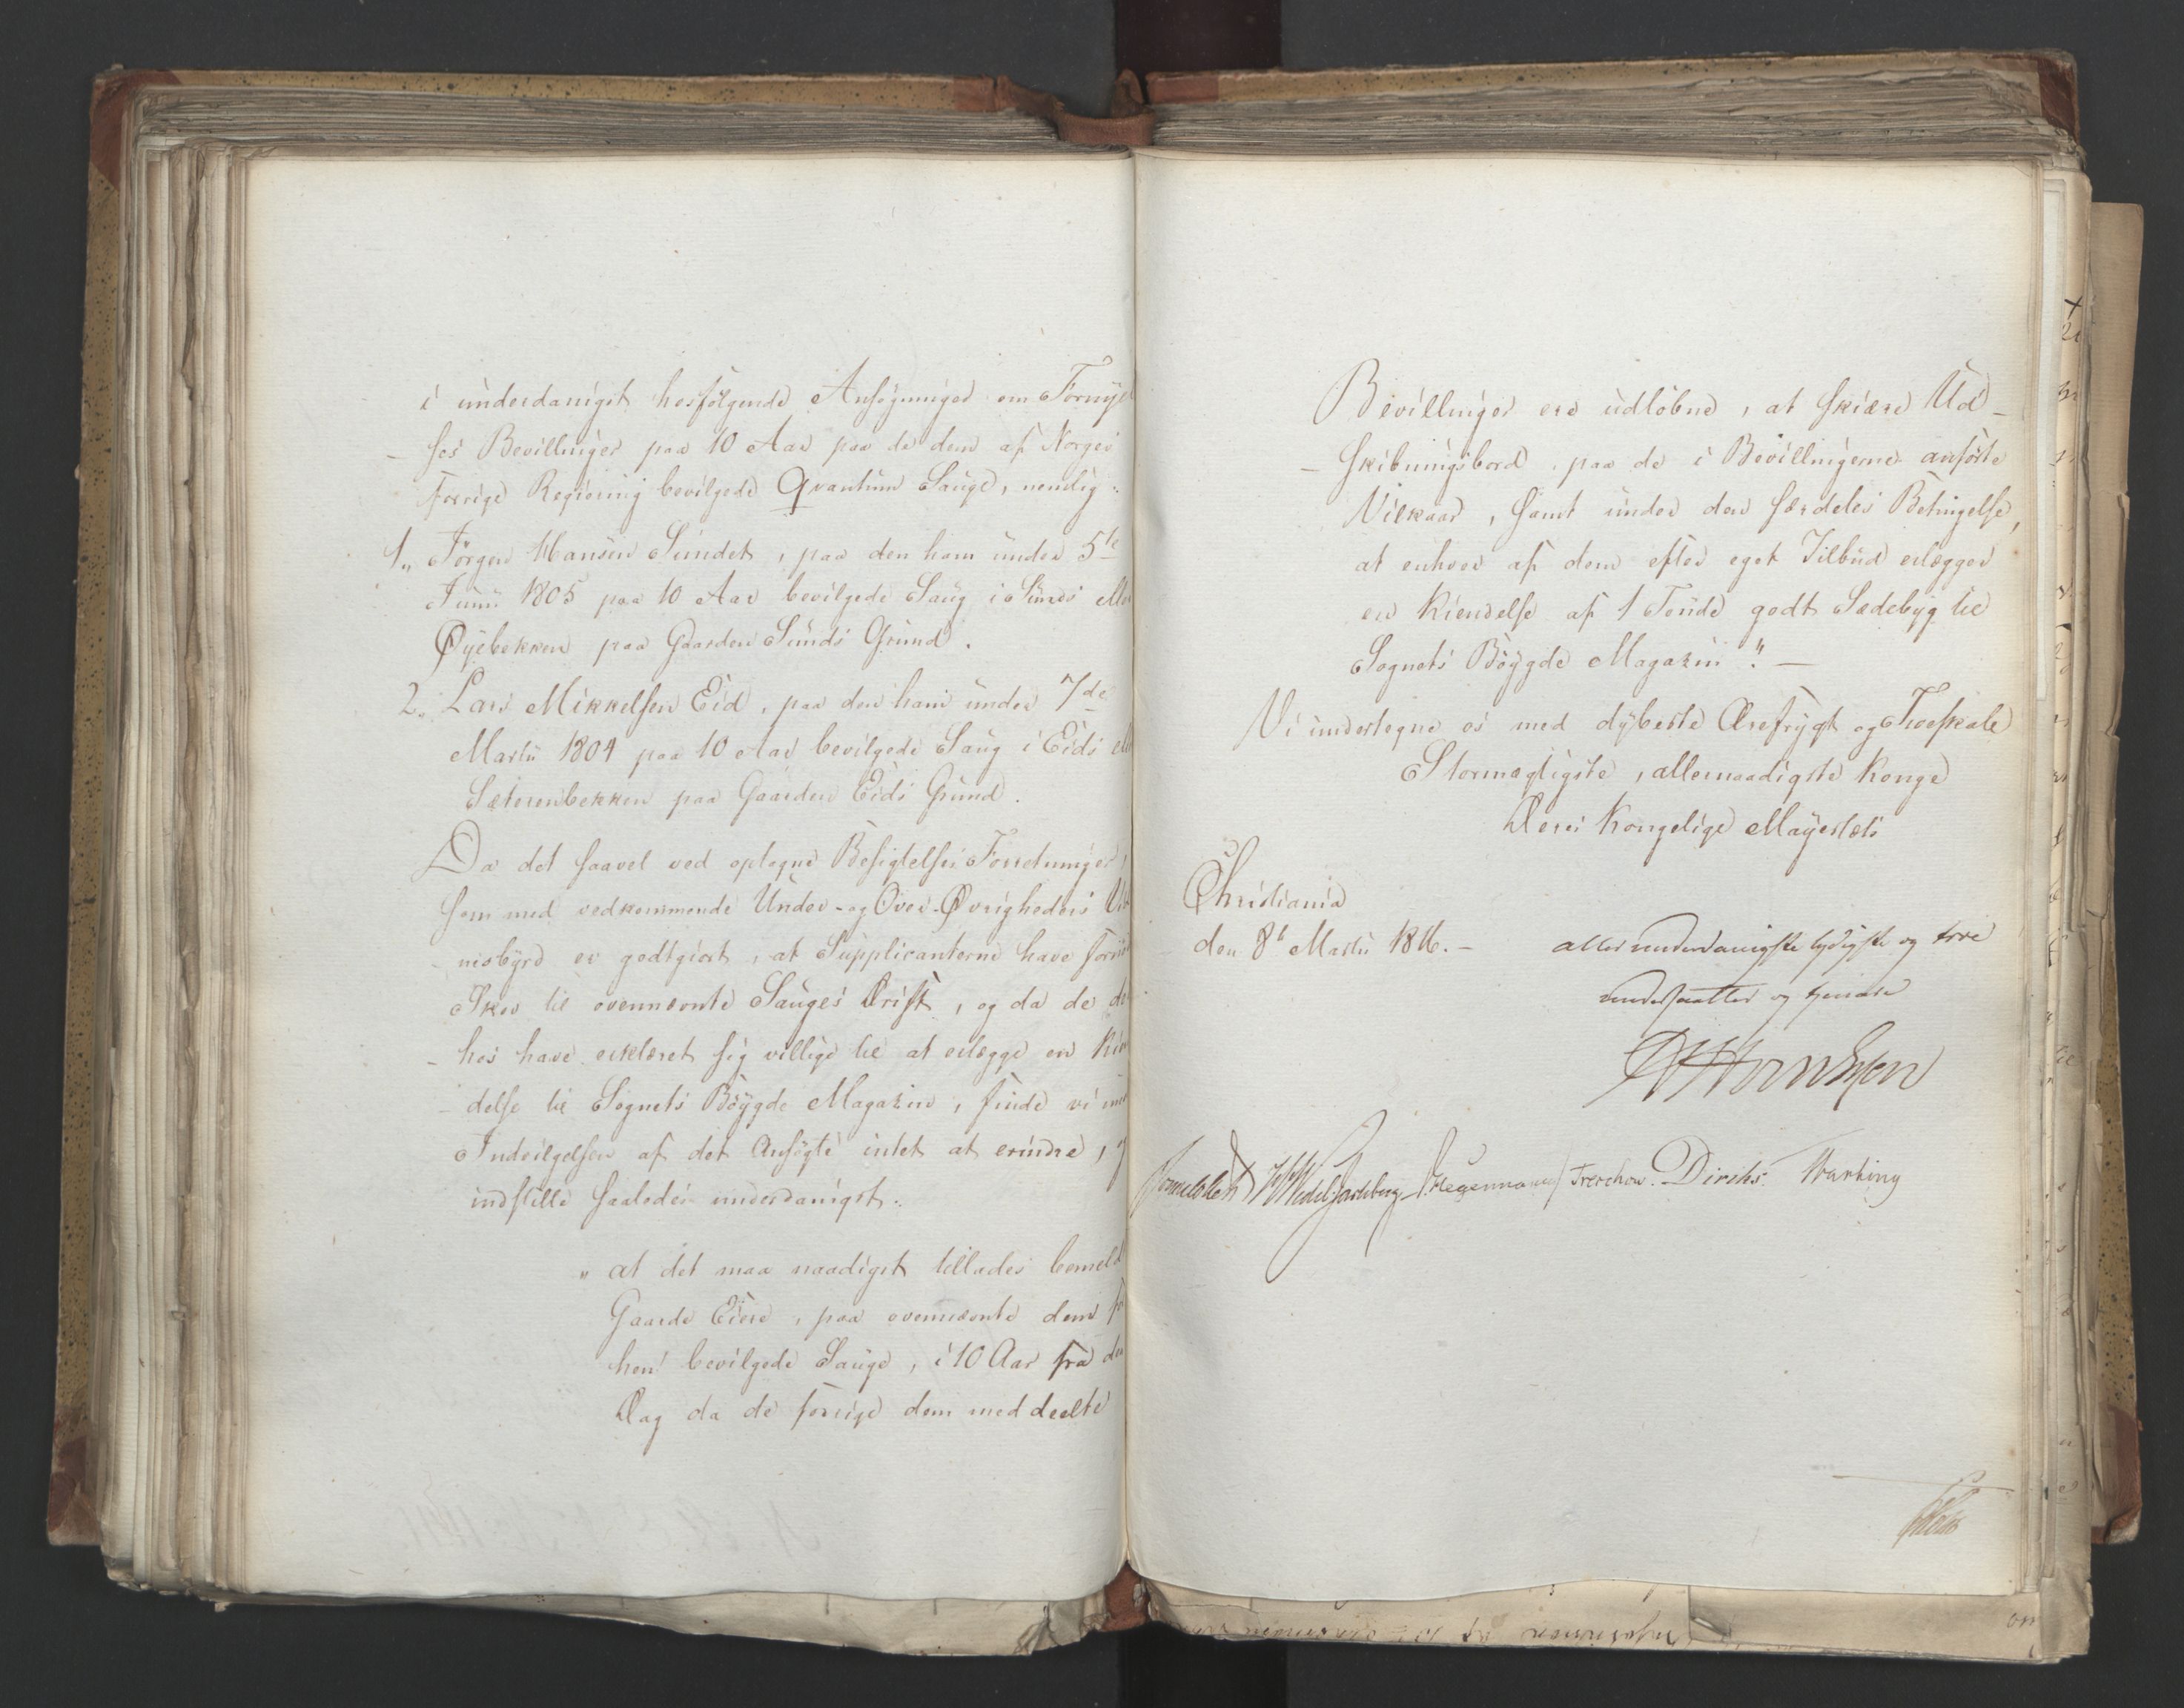 i underdanigst hosfölgende Ansögninger om Fornyel
- ses Bevillinger paa 10 Aar paa de dem af Norges
forrige Regiering bevilgede Qvantum Sauge, nemlig:
1„ Jörgen Hansen Sundet, paa den ham under 5te
Junii 1805 paa 10 Aar bevilgede Saug i Sunds elle
Øyebekken paa Gaarden Sunds Grund.
2. Lars Mikkelsen Eid, paa den ham under 7de
Martii 1804 paa 10 Aar bevilgede Saug i Eids ell
Sæterenbekken paa Gaarden Eids Grund.
Da det saavel ved optagne Besigtelses Forretninger,
som med vedkommende Under- og Over-Øvrigheders Vid
- nisbyrd er godtgiort, at Supplicanterne have fornö
Skov til ovennævnte Sauges Drift, og da de de
- hos have erklæret sig villige til at erlægge en Kien
- delse til Sognets Böygde Magazin, finde vi imo
Indvilgelsen af det Ansögte intet at erindre, og
indstille saaledes underdanigst:
„ at det maa naadigst tillades bemeld
Gaarde Eiere, paa ovennævnte dem for
hen bevilgede Sauge, i 10 Aar fra den
Dag da de forrige dem meddeelte
Bevillinger ere udlöbne, at skiære Ud-
- skibningsbord paa de i Bevillingerne anförte
Vilkaar, samt under den særdeles Betingelse,
at enhver af dem efter eget Tilbud erlægger
en Kiendelse af 1 Tönde godt Sædebyg til
Sognets Böygde Magazin“. —
Vi undertegne os med dybeste Ærefrygt og Troeskab
Stormægtigste, allernaadigste Konge
Deres Kongelige Mayestæts
Christiania
den 8de Martii 1816. -
allerunderdanigste lydigste og troe
undersaatter og tjenere
Sommerhielm Wedel Jarlsberg Hegermann Treschow. Diriks. Motzfeldt
Holst